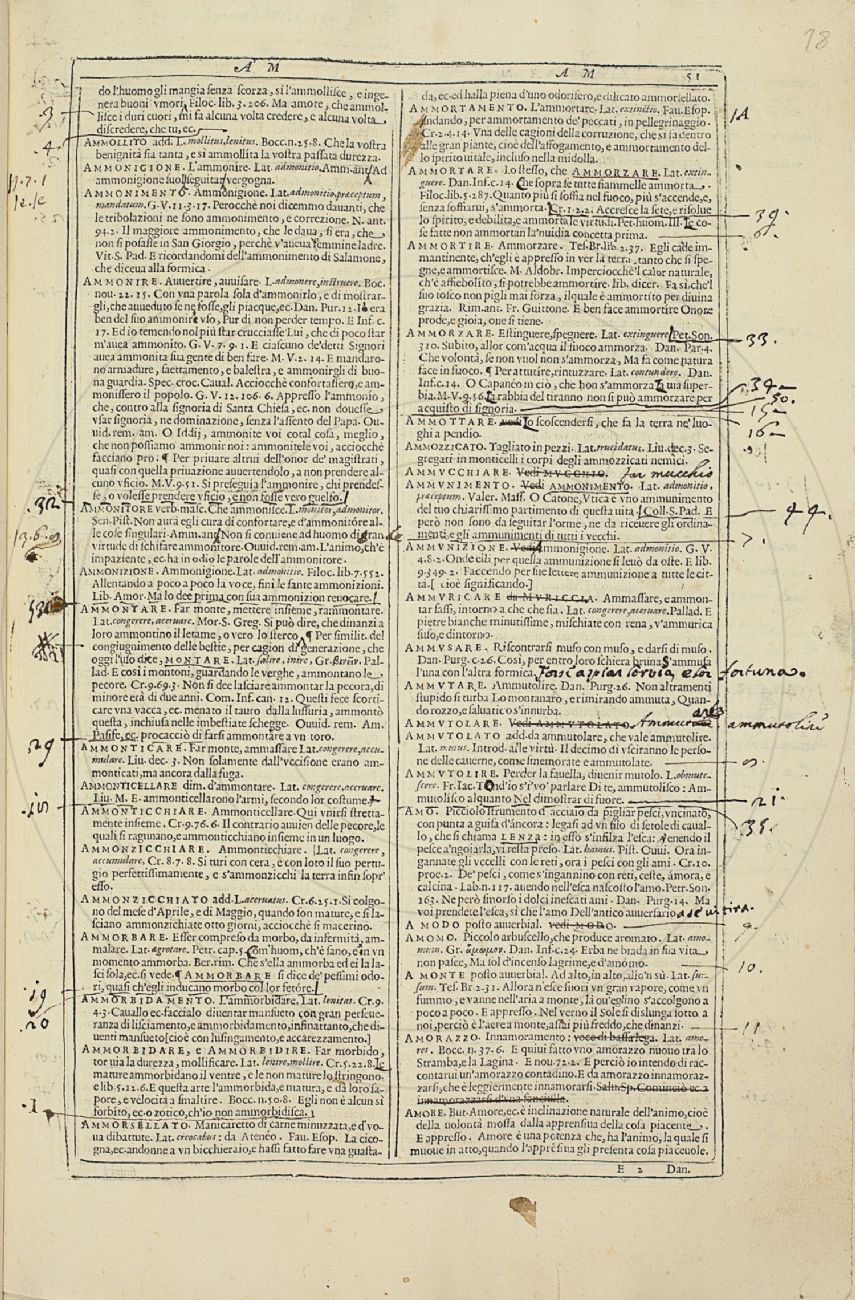 18
A M
A M
51
do l'huomo gli mangia senza scorza, si l'ammollisce, e inge-
nera buoni vmori, Filoc. lib. 3. 206. Ma amore, che ammol-
lisce i duri cuori, mi fa alcuna volta credere, e alcuna volta
discredere, che tu, ec.
AMMOLLITO add. L. mollitus, lenitus. Bocc. n. 25. 8. Che la vostra
benignità sia tanta, e sì ammollita la vostra passata durezza.
AMMONIGIONE. L'ammonire. Lat. admonitio. Amm. ant. Ad
ammonigione suol seguitar vergogna.
AMMONIMENTO. Ammonigione. Lat. admonitio, præceptum,
mandatum. G. V. 11. 3. 17. Perocchè noi dicemmo davanti, che
le tribolazioni ne sono ammonimento, e correzione. N. ant.
94. 2. Il maggiore ammonimento, che le daua, sì era, che
non si posasse in San Giorgio, perchè v'aueua femmine ladre.
Vit. S. Pad. E ricordandomi dell'ammonimento di Salamone,
che diceua alla formica.
AMMONIRE. Auuertire, auuisare. L. admonere, instruere. Boc.
nou. 22. 15. Con vna parola sola d'ammonirlo, e di mostrar-
gli, che auueduto se ne fosse, gli piacque, ec. Dan. Pur. 12. Io era
ben del suo ammonire vso, Pur di non perder tempo. E Inf. c.
17. Ed io temendo nol più star crucciasse Lui, che di poco star
m'auea ammonito. G. V. 7. 9. 1. E ciascuno de'detti Signori
auea ammonita sua gente di ben fare. M. V. 2. 14. E mandaro-
no armadure, saettamento, e balestra, e ammonirgli di buo-
na guardia. Spec. croc. Caual. Acciocchè confortassero, e am-
monissero il popolo. G. V. 12. 106. 6. Appresso l'ammonio,
che, contro alla signoria di Santa Chiesa, ec. non douesse
vsar signoria, ne dominazione, senza l'assento del Papa. Ou-
uid. rem. am. O Iddij, ammonite voi cotal cosa, meglio,
che non possiamo ammonir noi: ammonitele voi, acciocchè
facciano prò. ¶ Per priuare altrui dell'onor de' magistrati,
quasi con quella priuazione auuertendolo, a non prendere al-
cuno vficio. M. V. 9. 51. Si preseguia l'ammonire, chi prendes-
se, o volesse prendere vficio, e non fosse vero guelfo.
AMMONITORE verb. masc. Che ammonisce. L. monitor, admonitor.
Sen. Pist. Non aurà egli cura di confortare, e d'ammonitore al-
le cose singulari. Amm. ant. Non si conuiene ad huomo di gran
virtude di schifare ammonitore. Ouuid. rem. am. L'animo, ch'è
impaziente, ec. ha in odio le parole dell'ammonitore.
AMMONIZIONE. Ammonigione. Lat. admonitio. Filoc. lib. 7. 552.
Allentando a poco a poco la voce, fini le sante ammonizioni.
Lib. Amor. Ma lo dee prima con sua ammonizion reuocare.
AMMONTARE. Far monte, mettere insieme, rammontare.
Lat. congerere, aceruare. Mor. S. Greg. Si può dire, che dinanzi a
loro ammontino il letame, o vero lo sterco. ¶ Per similit. del
congiugnimento delle bestie, per cagion di generazione, che
oggi l'uso dice, MONTARE. Lat. salire, inire, Gr.
Pal-
lad. E così i montoni, guardando le verghe, ammontano le
pecore. Cr. 9. 69. 3. Non si dee lasciare ammontar la pecora, di
minore età di due anni. Com. Inf. can. 12. Questi fece scorti-
care vna vacca, ec. menato il tauro dalla lussuria, ammontò
questa, inchiusa nelle imbestiate schegge. Ouuid. rem. Am.
Pasife, ec. procacciò di farsi ammontare a vn toro.
AMMONTICARE. Far monte, ammassare Lat. congerere, accu-
mulare. Liu. dec. 3. Non solamente dall'vccisione erano am-
monticati, ma ancora dalla fuga.
AMMONTICELLARE dim. d'ammontare. Lat. congerere, aceruare.
Liu. M. E ammonticellarono l'armi, secondo lor costume.
AMMONTICCHIARE. Ammonticellare. Qui vnirsi stretta-
mente insieme. Cr. 9. 76. 6. Il contrario auuien delle pecore, le
quali si ragunano, e ammonticchiano insieme in un luogo.
AMMONZICCHIARE. Ammonticchiare. Lat. congerere,
accumulare. Cr. 8. 7. 8. Si turi con cera, e con loto il suo pertu-
gio perfettissimamente, e s'ammonzicchi la terra infin sopr'
esso.
AMMONZICCHIATO add. L. aceruatus. Cr. 6. 25. 1. Si colgo-
no del mese d'Aprile, e di Maggio, quando son mature, e si la-
sciano ammonzicchiate otto giorni, acciocchè si macerino.
AMMORBARE. Esser compreso da morbo, da infermità, am-
malare. Lat. ægrotare. Petr. cap. 5. Com'huom, ch'è sano, e in vn
momento ammorba. Ber. rim. Che s'ella ammorba ed ei la la-
sci sola, ec. si vede. ¶ AMMORBARE si dice de' pessimi odo-
ri, quasi ch'egli inducano morbo col lor fetore.
AMMORBIDAMENTO. L'ammorbidare. Lat. lenitas. Cr. 9.
4. 3. Cauallo ec. faccialo diuentar mansueto con gran perseue-
ranza di lisciamento, e ammorbidamento, infinattanto, che di-
uenti mansueto [cioè con lusingamento, e accarezzamento.]
AMMORBIDARE, E AMMORBIDIRE. Far morbido,
tor via la durezza, mollificare. Lat. lenire, mollire. Cr. 5. 22. 8. Le
mature ammorbidano il ventre, e le non mature lo stringono.
e lib. 5. 12. 6. E questa arte l'ammorbida, e matura, e dà loro sa-
pore, e velocità a smaltire. Bocc. n. 50. 8. Egli non è alcun sì
forbito, ec. o zotico, ch'io non ammorbidisca.
AMMORSELLATO. Manicaretto di carne minuzzata, e d'vo-
ua dibattute. Lat. creocabus: da Ateneo. Fau. Esop. La cico-
gna, ec. andonne a vn bicchieraio, e hassi fatto fare vna guasta-
da, ec. ed halla piena d'uno odorifero, e dilicato ammorsellato.
AMMORTAMENTO. L'ammortare. Lat. extinctio. Fau. Esop.
Andando, per ammortamento de' peccati, in pellegrinaggio.
Cr. 2. 4. 14. Vna delle cagioni della corruzione, che si fa dentro
alle gran piante, cioè dell'affogamento, e ammortamento del-
lo spirito uitale, incluso nella midolla.
AMMORTARE. Lo stesso, che AMMORZARE. Lat. extin-
guere. Dan. Inf. c. 14. Che sopra se tutte fiammelle ammorta.
Filoc. lib. 5. 287. Quanto più si soffia nel fuoco, più s'accende, e,
senza soffiarui, s'ammorta. Cr. 1. 2. 2. Accresce la sete, e risolue
lo spirito, e debilita, e ammorta le virtudi. Per. huom. Ill. Le co-
se fatte non ammortan la'nuidia concetta prima.
AMMORTIRE. Ammorzare. Tes. Br. lib. 2. 37. Egli casse im-
mantinente, ch'egli è appresso in ver la terra, tanto che si spe-
gne, e ammortisce. M. Aldobr. Imperciocchè'l calor naturale,
ch'è affiebolito, si potrebbe ammortire. lib. dicer. Fa sì, che'l
suo tosco non pigli mai forza, il quale è ammortito per diuina
grazia. Rim. ant. Fr. Guittone. E ben face ammortire Onore
prode, e gioia, oue si tiene.
AMMORZARE. Estinguere, spegnere. Lat. extinguere. Pet. Son.
310. Subito, allor com'acqua il fuoco ammorza. Dan. Par. 4.
Che volontà, se non vuol non s'ammorza, Ma fa come natura
face in fuoco. ¶ Per attutire, rintuzzare. Lat. contundere. Dan.
Inf. c. 14. O Capaneo in ciò, che non s'ammorza La tua super-
bia. M. V. 9. 56. La rabbia del tiranno non si può ammorzare per
acquisto di signoria.
AMMOTTARE. vedi Lo scoscendersi, che fa la terra ne'luo-
ghi a pendio.
AMMOZZICATO. Tagliato in pezzi. Lat. trucidatus. Liu. dec. 3. Se-
gregati in monticelli i corpi degli ammozzicati nemici.
AMMVCCHIARE. Vedi MVCCHIO. far mucchio
AMMVNIMENTO. Vedi AMMONIMENTO. Lat. admonitio,
præceptum. Valer. Mass. O Catone, Vtica è vno ammunimento
del tuo chiarissimo partimento di questa uita. Coll. S. Pad. E
però non sono da seguitar l'orme, ne da riceuere gli ordina-
menti, e gli ammunimenti di tutti i vecchi.
AMMVNIZIONE. Vedi Ammonigione. Lat. admonitio. G. V.
4. 8. 2. Onde ciò per questa ammunizione si leuò da oste. E lib.
9. 349. 2. Faccendo per sue lettere ammunizione a tutte le cit-
ta. [cioè significando.]
AMMVRICARE da MVRICCIA. Ammassare, e ammon-
tar sassi, intorno a che che sia. Lat. congerere, aceruare. Pallad. E
pietre bianche minutissime, mischiate con rena, v'ammurica
suso, e dintorno.
AMMVSARE. Riscontrarsi muso con muso, e darsi di muso.
Dan. Purg. c. 26. Così, per entro loro schiera bruna S'ammusa
l'una con l'altra formica. Forsi a spiar lor via, e lor fortuna.
AMMVTARE. Ammutolire. Dan. Purg. 26. Non altramenti
stupido si turba Lo montanaro, e rimirando ammuta, Quan-
do rozzo, e saluatico s'inurba.
AMMVTOLARE. Vedi AMMVTOLATO. ammutolire
AMMVTOLATO add. da ammutolare, che vale ammutolire.
Lat. mutus. Introd. alle virtù. Il decimo di vsciranno le perso-
ne delle cauerne, come smemorate e ammutolate.
AMMVTOLIRE. Perder la fauella, diuenir mutolo. L. obmute-
scere. Fr. Iac. T. Ond'io s'i'vo' parlare Di te, ammutolisco: Am-
mutolisco alquanto Nel dimostrar di fuore.
AMO. Picciolo strumento d'acciaio da pigliar pesci, vncinato,
con punta a guisa d'ancora: legasi ad vn filo di setole di caual-
lo, che si chiama LENZA: in esso s'infilza l'esca: Venendo il
pesce a'ngoiarla, vi resta preso. Lat. hamus. Pist. Ouui. Ora in-
gannate gli vccelli con le reti, ora i pesci con gli ami. Cr. 10.
proe. 2. De' pesci, come s'ingannino con reti, ceste, amora, e
calcina. Lab. n. 117. auendo nell'esca nascosto l'amo. Petr. Son.
163. Ne però smorso i dolci inescati ami. Dan. Purg. 14. Ma
voi prendete l'esca, sì che l'amo Dell'antico auuersario a se vi tira.
A MODO posto auuerbial. vedi MODO.
AMOMO. Piccolo arbuscello, che produce aromato. Lat. amo-
mum. Gr. ἄμωμον. Dan. Inf. c. 24. Erba ne biada in sua vita
non pasce, Ma sol d'incenso lagrime, e d'amomo.
A MONTE posto auuerbial. Ad alto, in alto, allo'n sù. Lat. sur-
sum. Tes. Br. 2. 31. Allora n'esce fuori vn gran vapore, come vn
fummo, e vanne nell'aria a monte, là ou'eglino s'accolgono a
poco a poco. E appresso. Nel verno il Sole si dislunga iotto a
noi, perciò è l'aere a monte, assai più freddo, che dinanzi.
AMORAZZO. Innamoramento: voce di bassa lega. Lat. amo-
res. Bocc. n. 37. 6. E quiui fatto vno amorazzo nuouo tra lo
Stramba, e la Lagina. E nou. 72. 2. E perciò io intendo di rac-
contar vn'amorazzo contadino. E da amorazzo innamoraz-
zarsi, che è leggiermente innamorarsi. Salu. Sp. Cominciò ec. a
innamorazzarsi d'vna fanciulla.
AMORE. But. Amore, ec. è inclinazione naturale dell'animo, cioè
della uolontà mossa dalla apprensiua della cosa piacente.
E appresso. Amore è una potenza che, ha l'animo, la quale si
muoue in atto, quando l'apprensiua gli presenta cosa piaceuole.
E 2 Dan.
3
4
32
29
19
20
1
1A
39.
6.
33.
34
50.
15
16
44.
7.
ammutolire
21.
35.
9.
10.
11